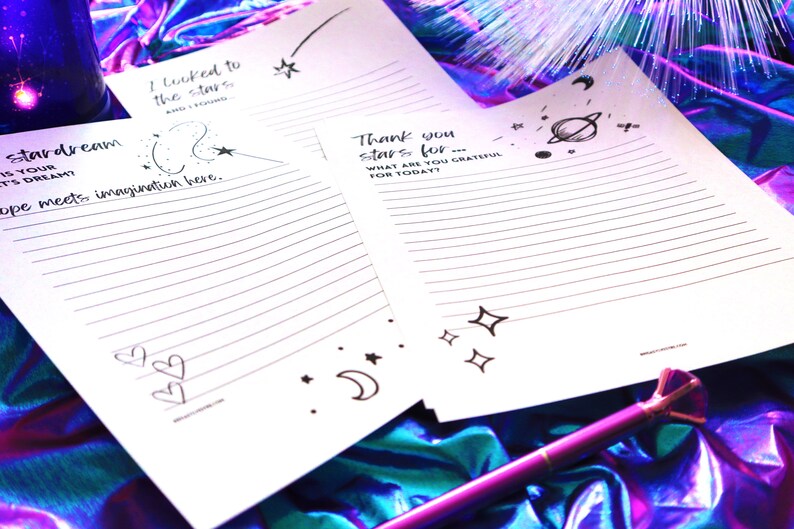 I Looked to
the stars
AND I FOUND...
stardream
IS YOUR
DREAM?
meets imagination here.
Thank you
stars for...
WHAT ARE YOU GRATEFUL
FOR TODAY?